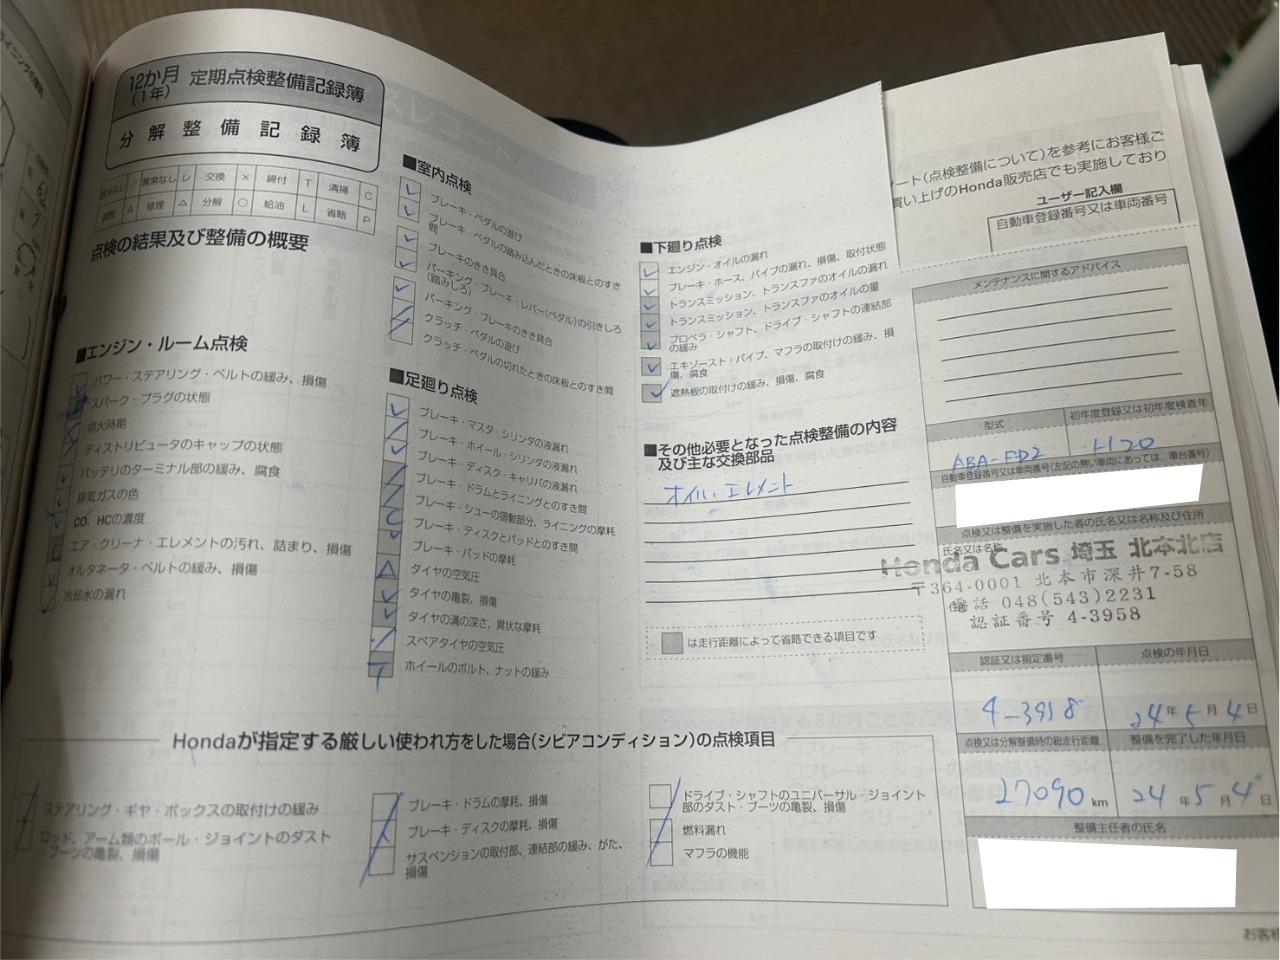 12か月
(1年)
定期点検整備記録簿
分解整備記録簿
該当なし / 異常なし レ 交換 × 締付 T 清掃 C
調整 A 修理 △ 分解 ○ 給油 L 省略 P
点検の結果及び整備の概要
■エンジン・ルーム点検
パワー・ステアリング・ベルトの緩み、損傷
スパーク・プラグの状態
点火時期
ディストリビュータのキャップの状態
バッテリのターミナル部の緩み、腐食
排気ガスの色
CO、HCの濃度
エア・クリーナ・エレメントの汚れ、詰まり、損傷
オルタネータ・ベルトの緩み、損傷
冷却水の漏れ
■室内点検
ブレーキ・ペダルの遊び
ブレーキ・ペダルの踏み込んだときの床板とのすき
間
ブレーキのきき具合
パーキング・ブレーキ・レバー(ペダル)の引きしろ
(踏みしろ)
パーキング・ブレーキのきき具合
クラッチ・ペダルの遊び
クラッチ・ペダルの切れたときの床板とのすき間
■足廻り点検
ブレーキ・マスタ・シリンダの液漏れ
ブレーキ・ホイール・シリンダの液漏れ
ブレーキ・ディスク・キャリパの液漏れ
ブレーキ・ドラムとライニングとのすき間
ブレーキ・シューの摺動部分、ライニングの摩耗
ブレーキ・ディスクとパッドとのすき間
ブレーキ・パッドの摩耗
タイヤの空気圧
タイヤの亀裂、損傷
タイヤの溝の深さ、異状な摩耗
スペアタイヤの空気圧
ホイールのボルト、ナットの緩み
■下廻り点検
エンジン・オイルの漏れ
ブレーキ・ホース、パイプの漏れ、損傷、取付状態
トランスミッション、トランスファのオイルの漏れ
トランスミッション、トランスファのオイルの量
プロペラ・シャフト、ドライブ・シャフトの連結部
の緩み
エキゾースト・パイプ、マフラの取付けの緩み、損
傷、腐食
遮熱板の取付けの緩み、損傷、腐食
■その他必要となった点検整備の内容
及び主な交換部品
オイル、エレメント
は走行距離によって省略できる項目です
ート(点検整備について)を参考にお客様ご
買い上げのHonda販売店でも実施しており
ユーザー記入欄
自動車登録番号又は車両番号
メンテナンスに関するアドバイス
型式
初年度登録又は初年度検査年
ABA-FD2
H20
自動車登録番号又は車両番号(左記の無い車両にあっては、車台番号)
点検又は整備を実施した者の氏名又は名称及び住所
氏名又は名称
Honda Cars 埼玉 北本北店
〒364-0001 北本市深井7-58
電話 048(543)2231
認証番号 4-3958
認証又は指定番号
点検の年月日
4-3958
24年5月4日
点検又は分解整備時の総走行距離
整備を完了した年月日
27090 km
24年5月4日
整備主任者の氏名
Hondaが指定する厳しい使われ方をした場合(シビアコンディション)の点検項目
ステアリング・ギヤ・ボックスの取付けの緩み
ロッド、アーム類のボール・ジョイントのダスト
ブーツの亀裂、損傷
ブレーキ・ドラムの摩耗、損傷
ブレーキ・ディスクの摩耗、損傷
サスペンションの取付部、連結部の緩み、がた、
損傷
ドライブ・シャフトのユニバーサル・ジョイント
部のダスト・ブーツの亀裂、損傷
燃料漏れ
マフラの機能
お客様